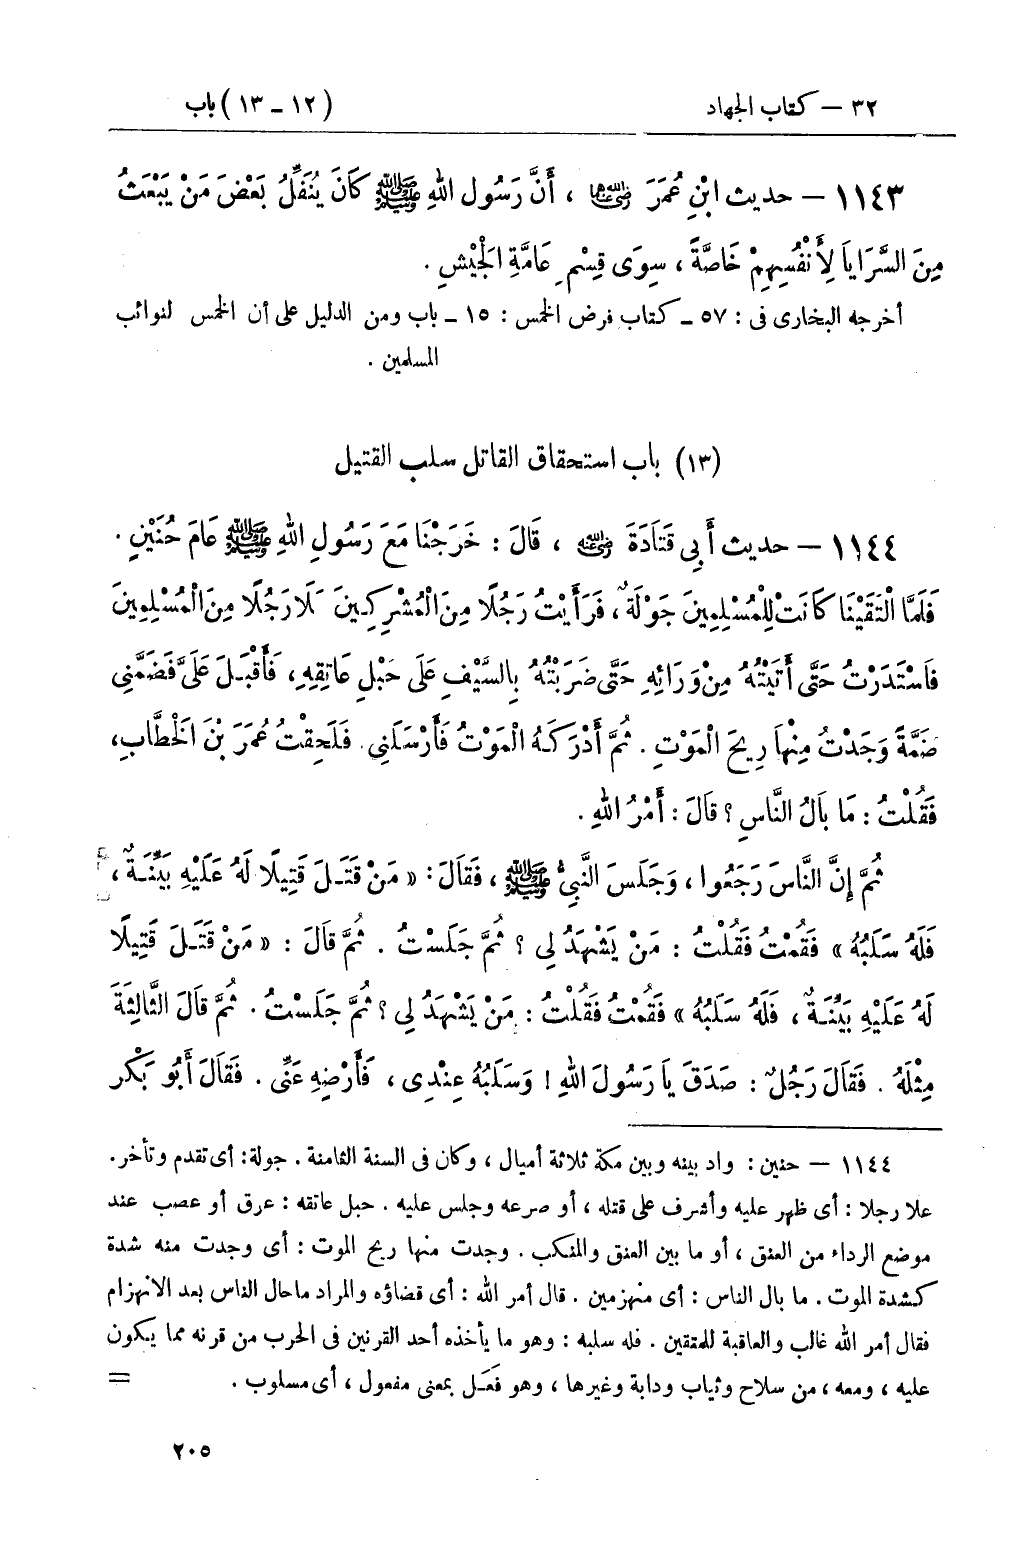 ٣٢ — كتاب الجهاد (١٢ – ١٣) باب
١١٤٣ — حديث ابْنِ عُمَرَ رضي الله عنهما ، أَنَّ رَسُول اللهِ ﷺ كَانَ يُنَفِّلُ بَعْضَ مَنْ يَبْعَثُ
مِنَ السَّرَايَا لِأَنْفُسِهِمْ خَاصَّةً ، سِوَى قِسْمِ عَامَّةِ الْجَيْشِ .
أخرجه البخارى فى : ٥٧ – كتاب فرض الخمس : ١٥ – باب ومن الدليل على أن الخمس لنوائب
المسلمين .
(١٣) باب استحقاق القاتل سلب القتيل
١١٤٤ — حديث أَبِي قَتَادَةَ رضي الله عنه ، قَالَ : خَرَجْنَا مَعَ رَسُولِ اللهِ ﷺ عَامَ حُنَيْنٍ .
فَلَمَّا الْتَقَيْنَا كَانَتْ لِلْمُسْلِمِينَ جَوْلَةٌ ، فَرَأَيْتُ رَجُلًا مِنَ الْمُشْرِكِينَ عَلَا رَجُلًا مِنَ الْمُسْلِمِينَ
فَاسْتَدَرْتُ حَتَّى أَتَيْتُهُ مِنْ وَرَائِهِ حَتَّى ضَرَبْتُهُ بِالسَّيْفِ عَلَى حَبْلِ عَاتِقِهِ ، فَأَقْبَلَ عَلَىَّ فَضَمَّنِي
ضَمَّةً وَجَدْتُ مِنْهَا رِيحَ الْمَوْتِ . ثُمَّ أَدْرَكَهُ الْمَوْتُ فَأَرْسَلَنِي . فَلَحِقْتُ عُمَرَ بْنَ الْخَطَّابِ ،
فَقُلْتُ : مَا بَالُ النَّاسِ ؟ قَالَ : أَمْرُ اللهِ .
ثُمَّ إِنَّ النَّاسَ رَجَعُوا ، وَجَلَسَ النَّبِيُّ ﷺ ، فَقَالَ : « مَنْ قَتَلَ قَتِيلًا لَهُ عَلَيْهِ بَيِّنَةٌ ،
فَلَهُ سَلَبُهُ » فَقُمْتُ فَقُلْتُ : مَنْ يَشْهَدُ لِي ؟ ثُمَّ جَلَسْتُ . ثُمَّ قَالَ : « مَنْ قَتَلَ قَتِيلًا
لَهُ عَلَيْهِ بَيِّنَةٌ ، فَلَهُ سَلَبُهُ » فَقُمْتُ فَقُلْتُ : مَنْ يَشْهَدُ لِي ؟ ثُمَّ جَلَسْتُ . ثُمَّ قَالَ الثَّالِثَةَ
مِثْلَهُ . فَقَالَ رَجُلٌ : صَدَقَ يَا رَسُولَ اللهِ ! وَسَلَبُهُ عِنْدِى ، فَأَرْضِهِ عَنِّى . فَقَالَ أَبُو بَكْرٍ
١١٤٤ — حنين : واد بينه وبين مكة ثلاثة أميال ، وكان فى السنة الثامنة . جولة : أى تقدم وتأخر .
علا رجلا : أى ظهر عليه وأشرف على قتله ، أو صرعه وجلس عليه . حبل عاتقه : عرق أو عصب عند
موضع الرداء من العنق ، أو ما بين العنق والمنكب . وجدت منها ريح الموت : أى وجدت منه شدة
كشدة الموت . ما بال الناس : أى منهزمين . قال أمر الله : أى قضاؤه والمراد ماحال الناس بعد الانهزام
فقال أمر الله غالب والعاقبة للمتقين . فله سلبه : وهو ما يأخذه أحد القرنين فى الحرب من قرنه مما يكون
عليه ، ومعه ، من سلاح وثياب ودابة وغيرها ، وهو فَعَل بمعنى مفعول ، أى مسلوب . =
٢٠٥